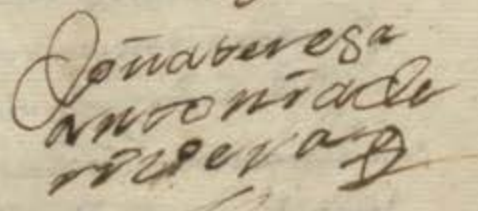 Doña teresa
antonia de
rivera